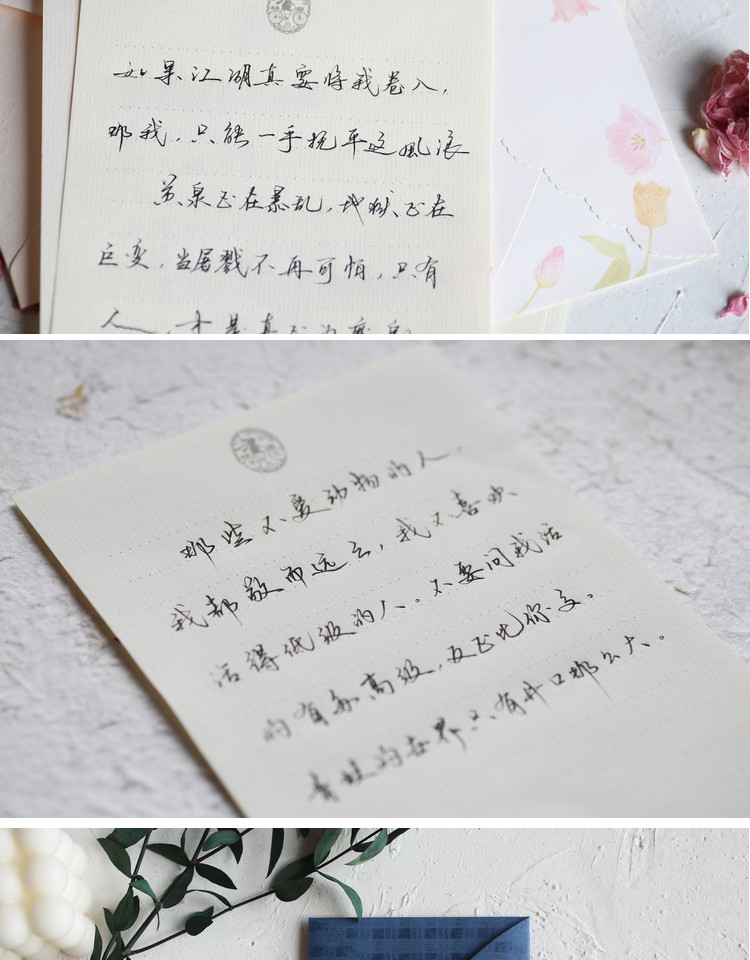 如果江湖真要将我卷入,
那我,只能一手抚平这風浪
黄泉正在暴乱,地狱正在
巨变,当屠戮不再可怕,只有
人,才是真正
那些不爱动物的人,
我都敬而远之,我不喜欢
活得低级的人。不要问我活
的有多高级,反正比你高。
青蛙的世界只有井口那么大。